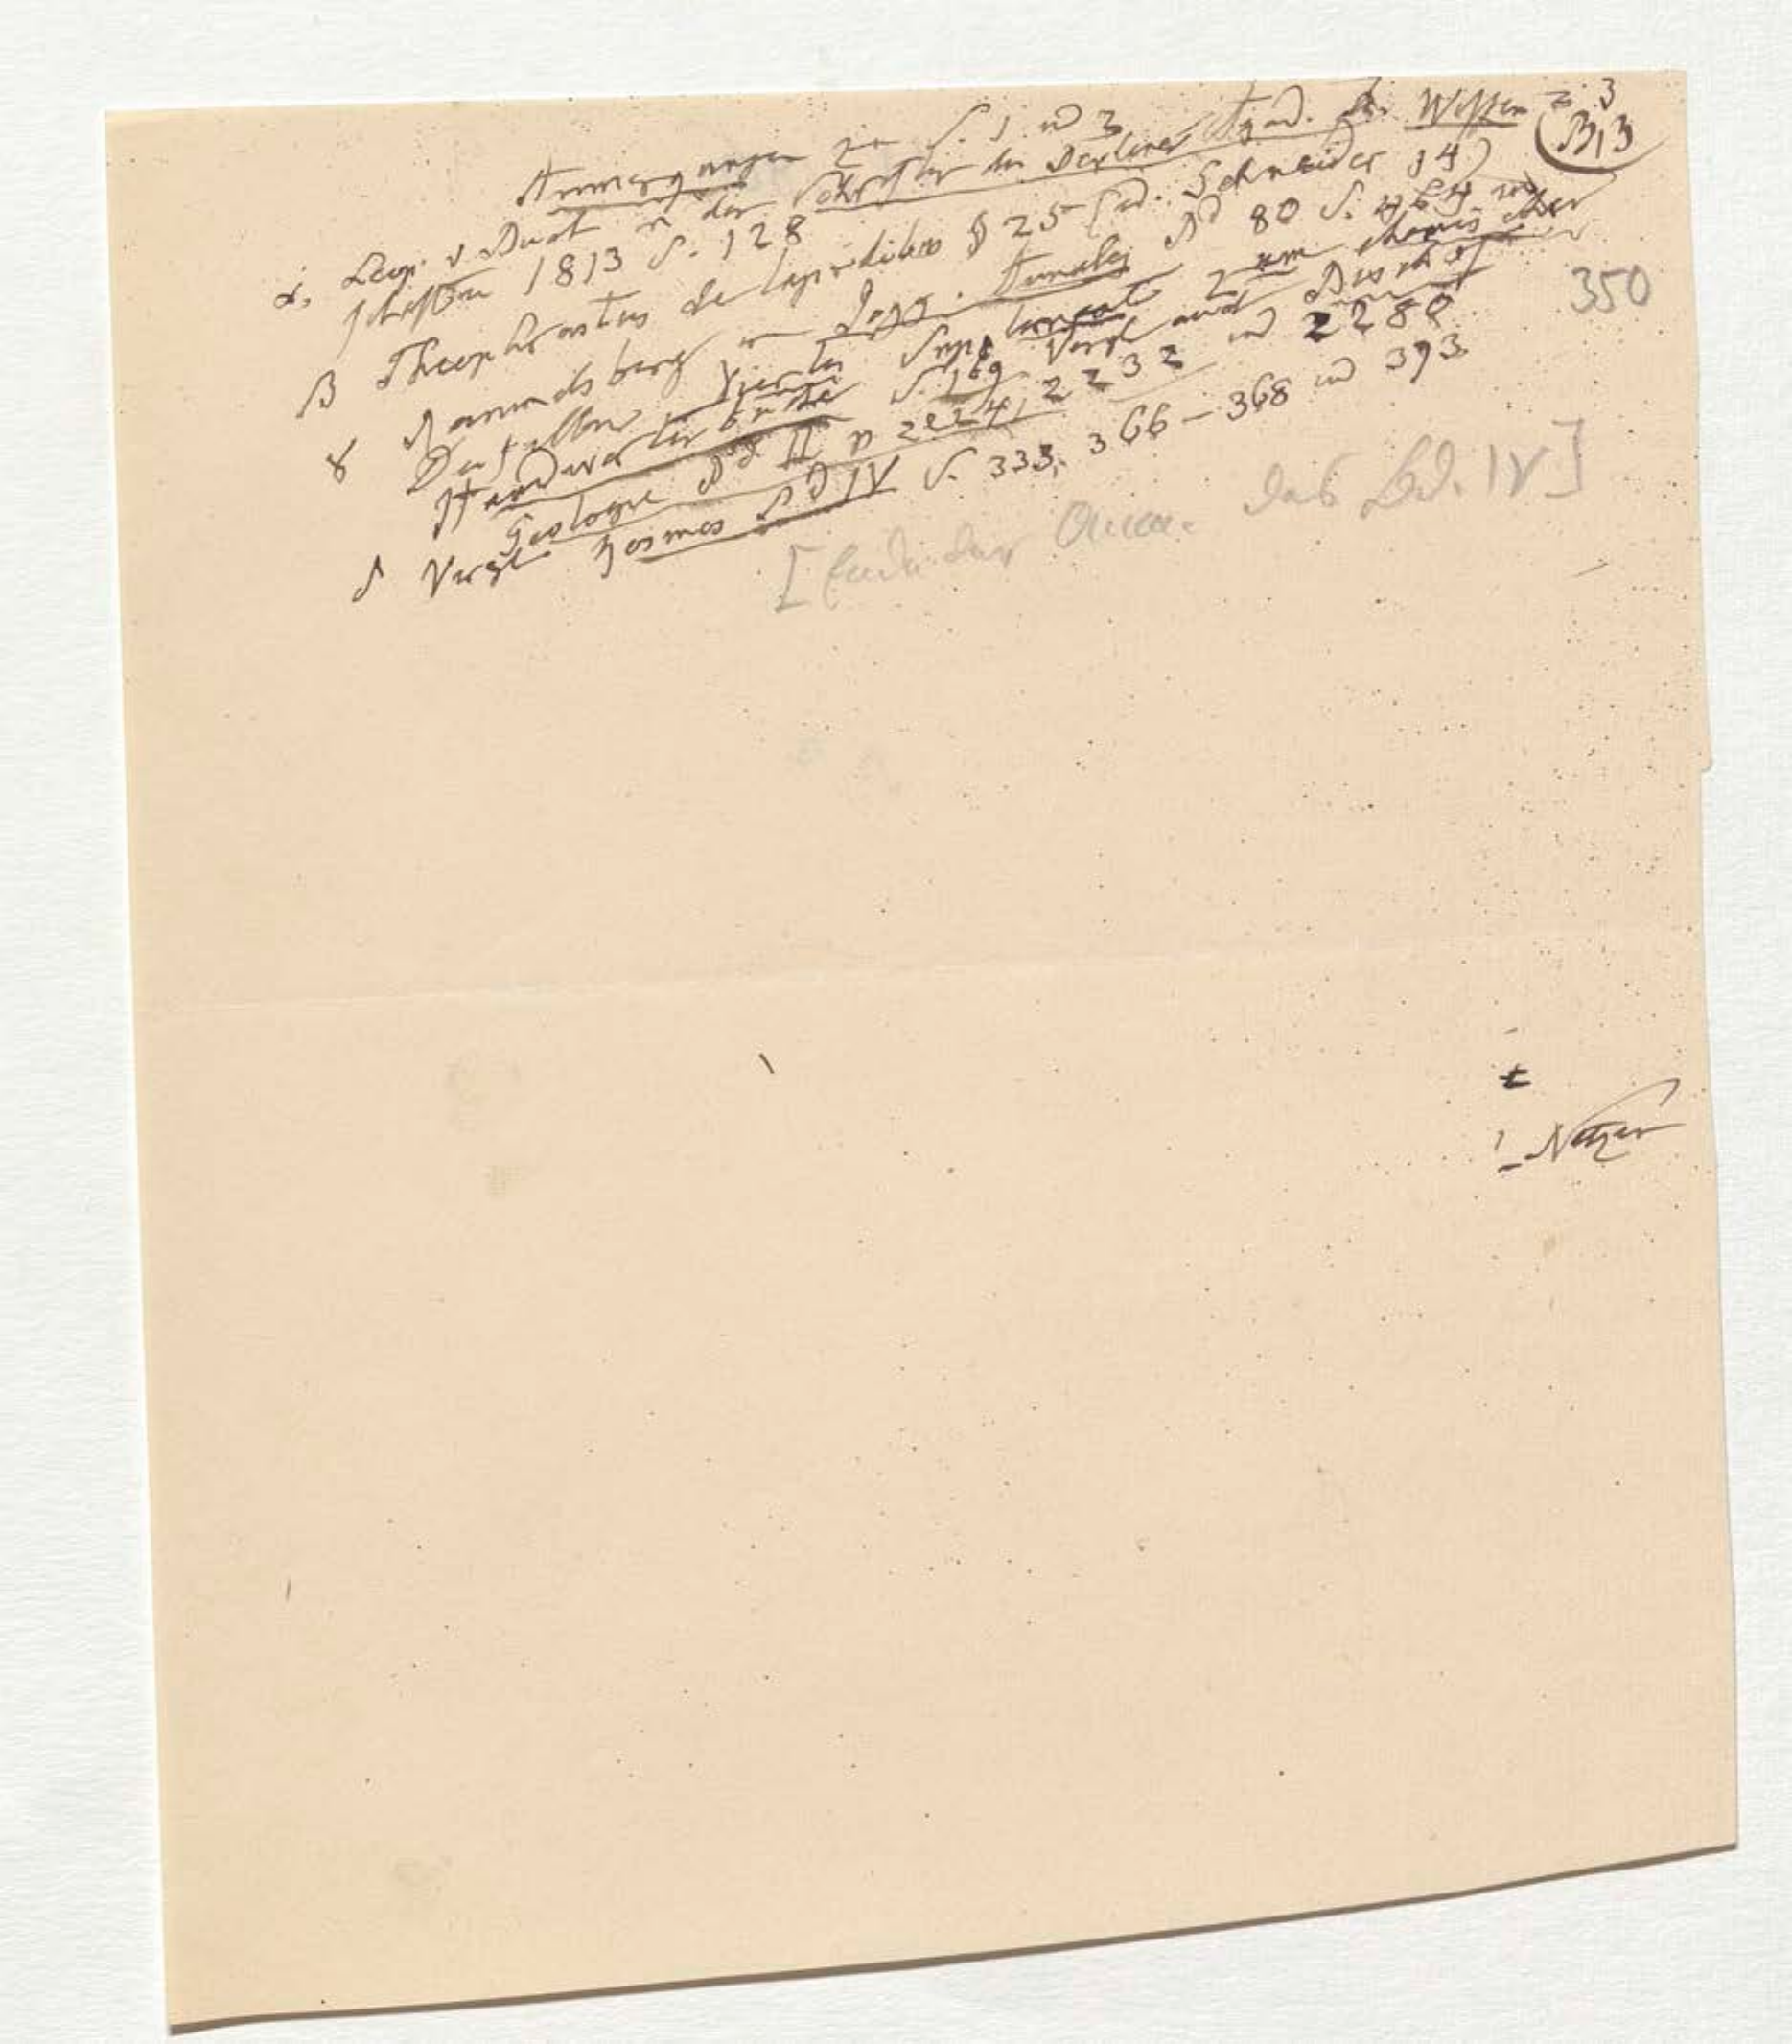 z. 3
B, 3
Anmerkungen zu S. 1 und 3
α. Leop. v Buch in den Schriften der Berliner Akad. der Wissen
schaften 1813 S. 128
β Theophrastus de lapidibus § 25 (ed. Schneider 14)
γ Rammelsberg in Pogg. Annalen Bd 80 S. 464 und
Desselben Viertes Suplement zum chemischen
Handwörterbuche S. 169 Vergl auch Bischof
Geologie Bd II p 2224, 2232 und 2280
δ Vergl. Kosmos Bd IV S. 333, 366–368 und 393
350
[Ende der Anm. des Bd. IV]